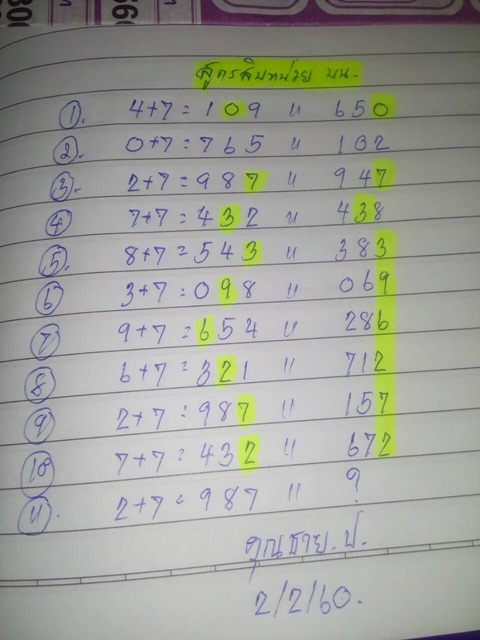 สูตรสิบหน่วย บน.
①. 4+7 = 109 " 650
②. 0+7 = 765 " 102
③. 2+7 = 987 " 947
④ 7+7 = 432 " 438
⑤. 8+7 = 543 " 383
⑥ 3+7 = 098 " 069
⑦ 9+7 = 654 " 286
⑧ 6+7 = 321 " 712
⑨ 2+7 = 987 " 157
⑩ 7+7 = 432 " 672
⑪. 2+7 = 987 " ?
คุณชาย.ป.
2/2/60.